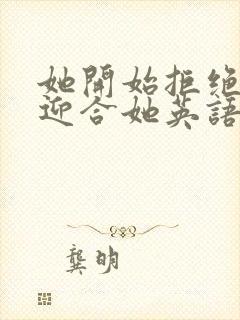 她開始拒絕
迎合她英語
龔明